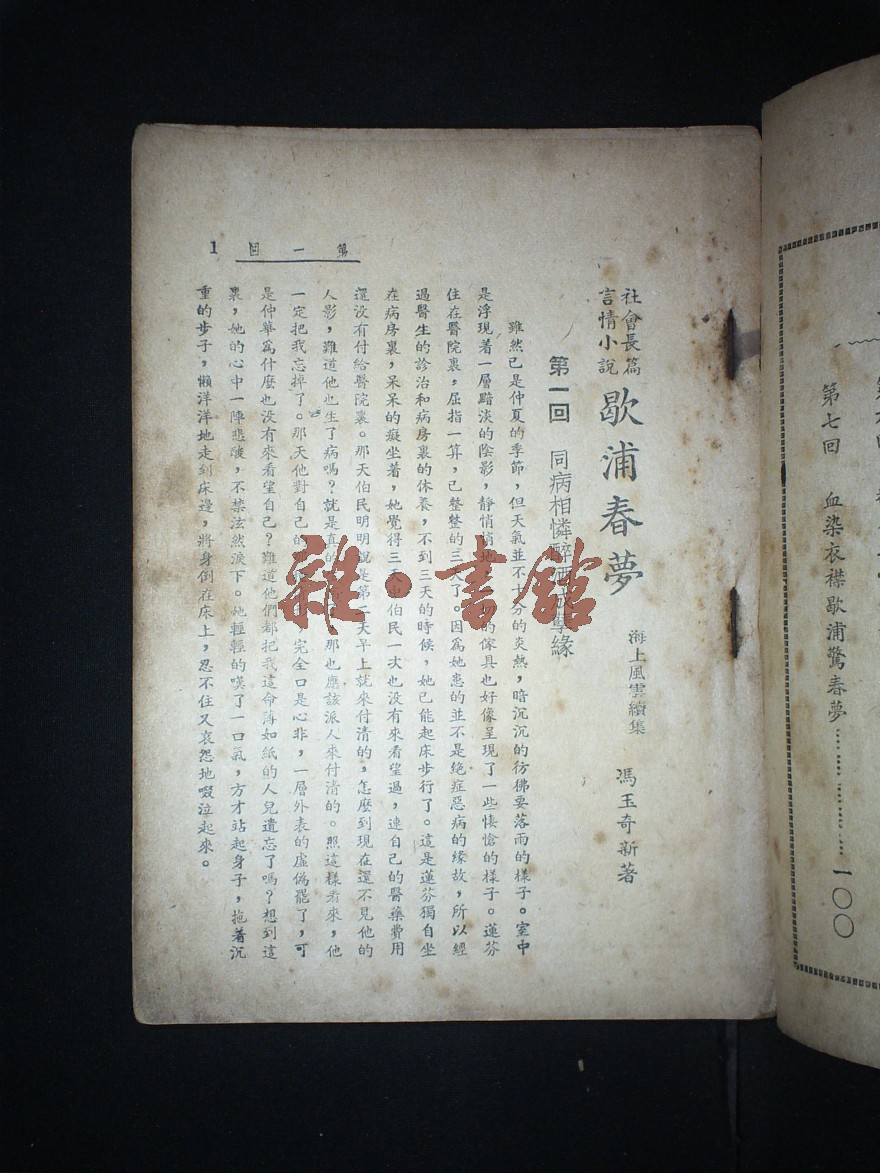 第七回 血染衣襟歇浦驚春夢 一〇〇
社會長篇
言情小說
歇浦春夢
海上風雲續集
馮玉奇新著
第一回 同病相憐醉酒成孽緣
雖然已是仲夏的季節，但天氣並不十分的炎熱，暗沉沉的彷彿要落雨的樣子。室中
是浮現着一層黯淡的陰影，靜悄悄地 的傢具也好像呈現了一些悽愴的樣子。蓮芬
住在醫院裏，屈指一算，已整整的三天了。因爲她患的並不是絕症惡病的緣故，所以經
過醫生的診治和病房裏的休養，不到三天的時候，她已能起床步行了。這是蓮芬獨自坐
在病房裏，呆呆的癡坐着，她覺得三天中伯民一次也沒有來看望過，連自己的醫藥費用
還沒有付給醫院裏。那天伯民明明說是第二天早上就來付清的，怎麼到現在還不見他的
人影，難道他也生了病嗎？就是真的 那也應該派人來付清的。照這樣看來，他
一定把我忘掉了。那天他對自己的 完全口是心非，一層外表的虛僞罷了，可
是仲華爲什麼也沒有來看望自己？難道他們都把我這命薄如紙的人兒遺忘了嗎？想到這
裏，她的心中一陣悲酸，不禁泫然淚下。她輕輕的嘆了一口氣，方才站起身子，拖着沉
重的步子，懶洋洋地走到床邊，將身倒在床上，忍不住又哀怨地啜泣起來。
第一回 1
雜·書館